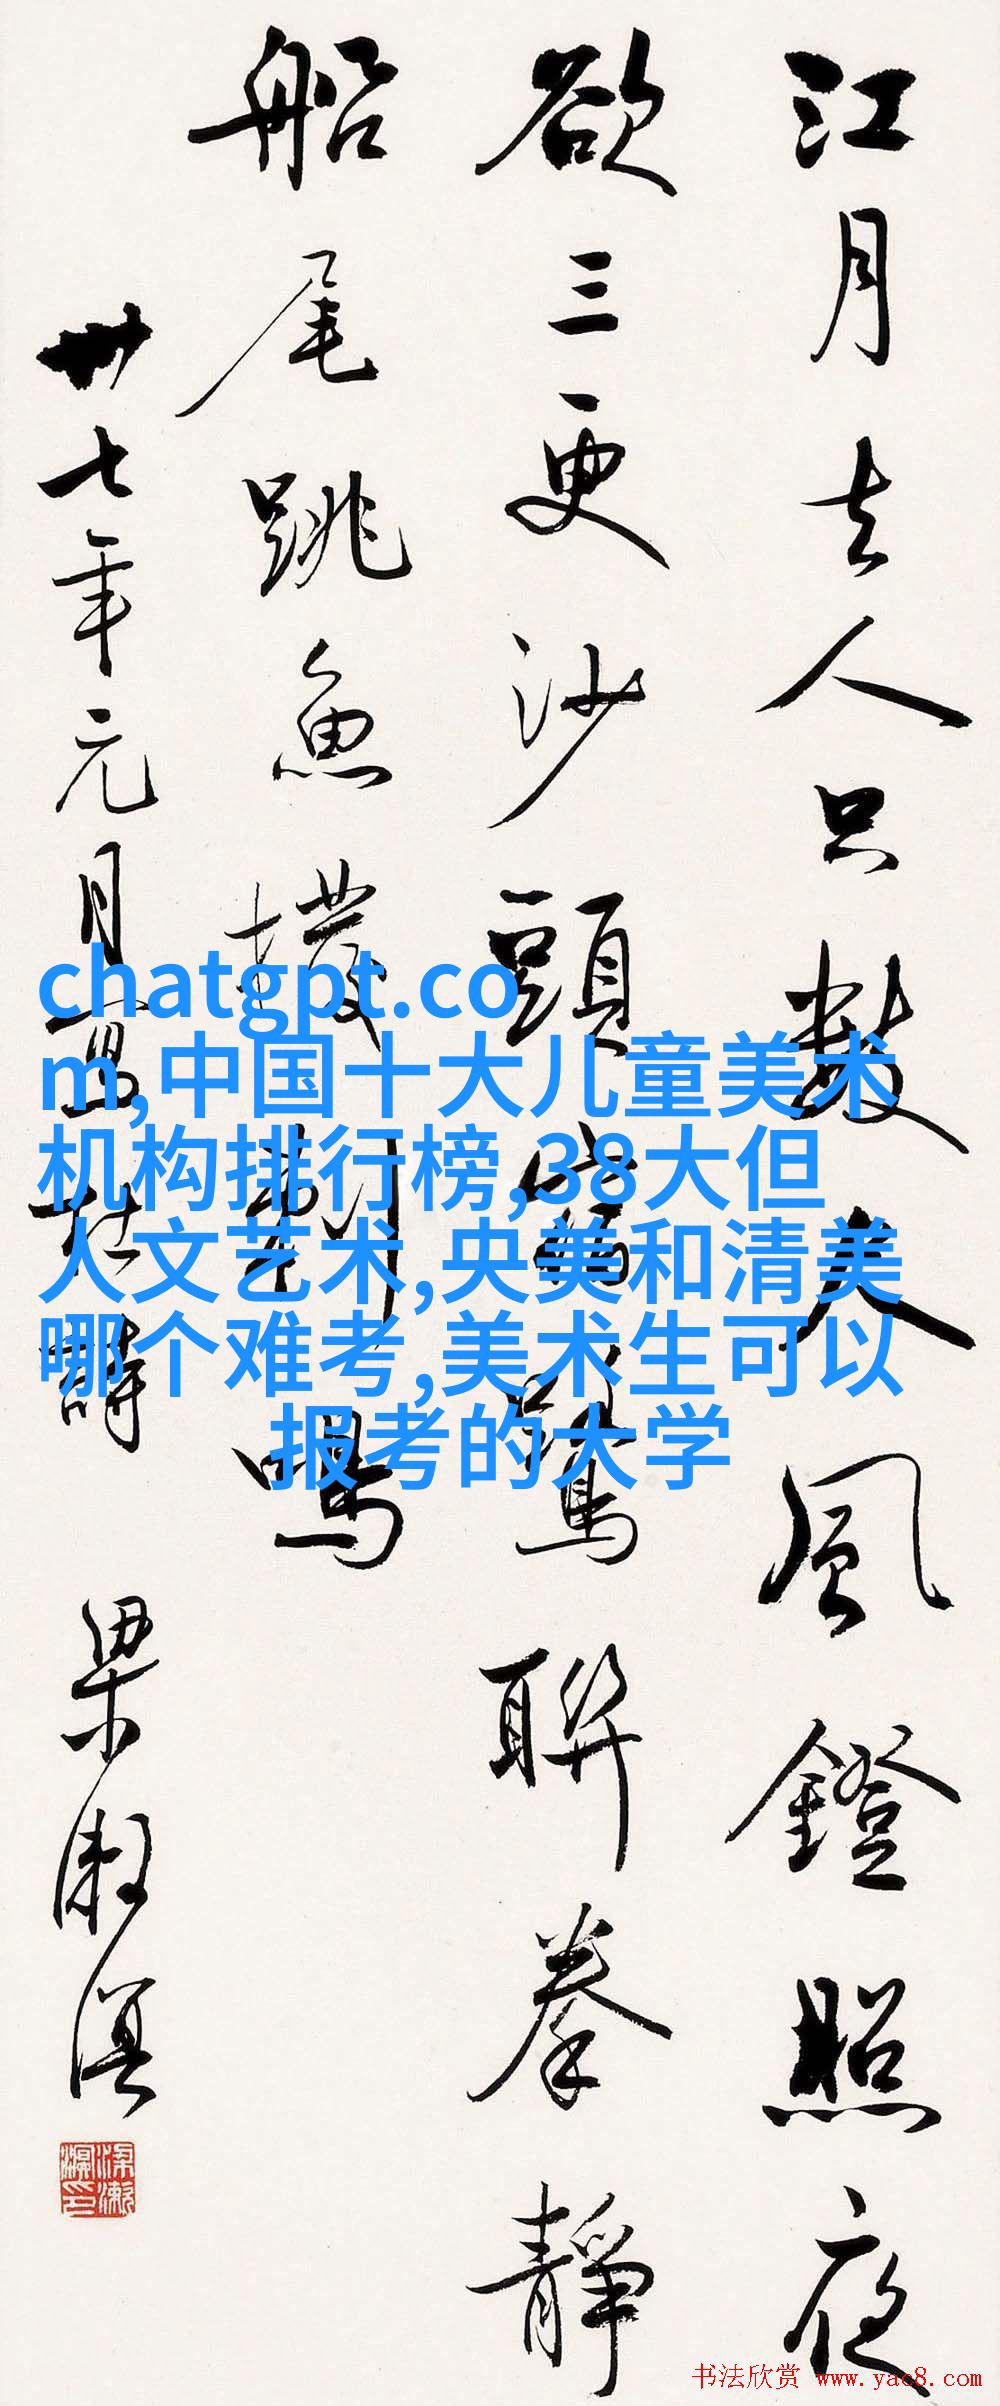 江月去人只數尺風鐙照夜
欲三更沙頭宿鷺聯拳靜
船尾跳魚撥剌鳴
卅七年元月寫杜詩 梁漱溟
梁漱溟印
chatgpt.co
m,中国十大儿童美术
机构排行榜,38大但
人文艺术,央美和清美
哪个难考,美术生可以
报考的大学
书法欣赏 www.yac8.com